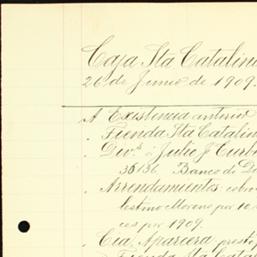 Caja Sta Catalina
26 de Junio de 1909.
A Existencia anterior
" Tienda Sta Catalin
" Div.s á Julio J
36186 Banco de
" Arrendamientos cobr
lestino Moreno por 10
ces por 1909.
" Cia Aparcera prest
Tienda Sta Cata